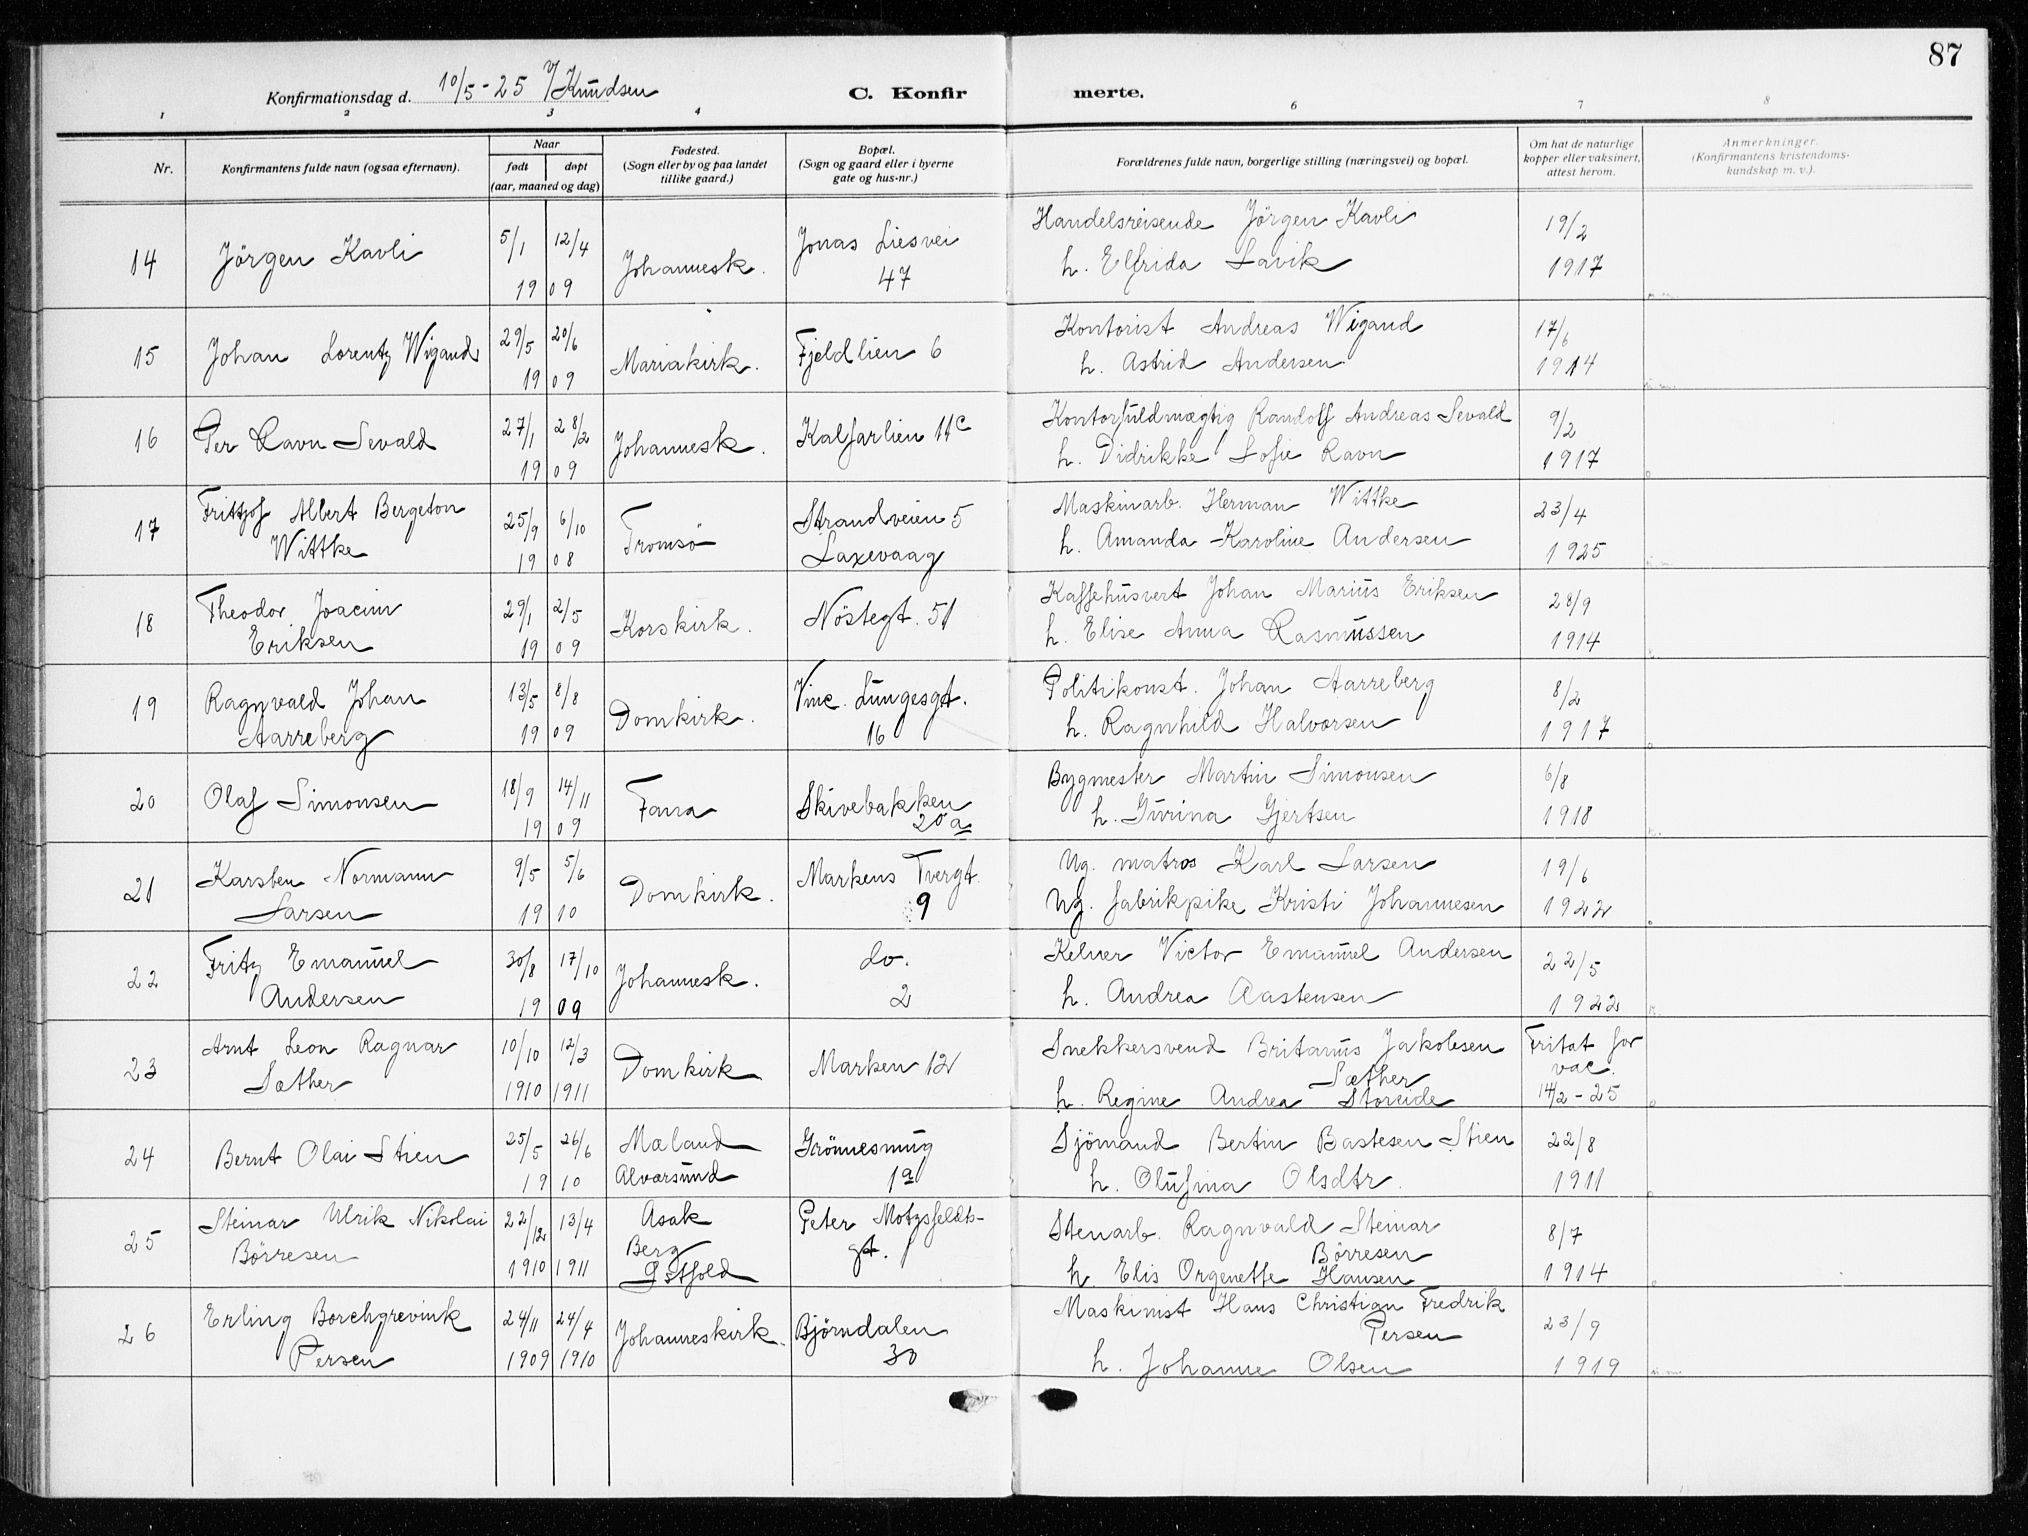 87
Konfirmationsdag d. 10/5-25 v/Knudsen C. Konfirmerte.
1 2 3 4 6 7 8
Nr. Konfirmantens fulde navn (ogsaa efternavn). Naar født døpt (aar, maaned og dag) Fødested. (Sogn eller by og paa landet tillike gaard.) Bopæl. (Sogn og gaard eller i byerne gate og hus-nr.) Forældrenes fulde navn, borgerlige stilling (næringsvei) og bopæl. Om hat de naturlige kopper eller vaksinert, attest herom. Anmerkninger. (Konfirmantens kristendoms-kundskap m. v.).
14 Jörgen Kavli 5/1 12/4 1909 Johannesk. Jonas Liesvei 47 Handelsreisende Jörgen Kavli h. Elfrida Lavik 19/2 1917
15 Johan Lorentz Wigand 29/5 20/6 1909 Mariakirk. Fjeldlien 6 Kontorist Andreas Wigand h. Astrid Andersen 17/6 1914
16 Per Ravn Sevald 27/1 28/2 1909 Johannesk. Kalfarlien 11c Kontorfuldmægtig Randolf Andreas Sevald h. Didrikke Sofie Ravn 9/2 1917
17 Frittjof Albert Bergeton Wittke 25/9 6/10 1908 Tromsö Strandveien 5 Laxevaag Maskinarb. Herman Wittke h. Amanda Karoline Andersen 23/4 1925
18 Theodor Joacim Eriksen 29/1 2/5 1909 Korskirk. Nöstegt. 51 Kaffehusvert Johan Marius Eriksen h. Elise Anna Rasmussen 28/9 1914
19 Ragnvald Johan Aarreberg 13/5 8/8 1909 Domkirk. Vinc. Lungesgt. 16 Politikonst. Johan Aarreberg h. Ragnhild Halvorsen 8/2 1917
20 Olaf Simonsen 18/9 14/11 1909 Fana Skivebakken 20a Bygmester Martin Simonsen h. Gurina Gjertsen 6/8 1918
21 Karsten Normann Larsen 9/5 5/6 1910 Domkirk. Markens Tvergt. 9 Ug. matros Karl Larsen Ug. fabrikpike Kristi Johannesen 19/6 1922
22 Fritz Emanuel Andersen 30/8 17/10 1909 Johannesk. do. 2 Kelner Victor Emanuel Andersen h. Andrea Aastensen 22/5 1922
23 Arnt Leon Ragnar Sæther 10/10 1910 12/3 1911 Domkirk Marken 12 Snekkersvend Britanus Jakobsen Sæther h. Regine Andrea Storeide Fritat for vac. 14/2-25
24 Bernt Olai Stien 25/5 26/6 1910 Mæland Alversund Grönnesmug 1a Sjömand Bertin Bastesen Stien h. Olufina Olsdtr. 22/8 1911
25 Steinar Ulrik Nikolai Börresen 22/12 1910 13/4 1911 Asak Berg Östfold Peter Motzfeldts-gt. 1 Stenarb. Ragnvald Steinar Börresen h. Elis Orgenette Hansen 8/7 1914
26 Erling Borchgrevink Persen 24/11 1909 24/4 1910 Johanneskirk. Björndalen 30 Maskinist Hans Christian Fredrik Persen h. Johanne Olsen 23/9 1919